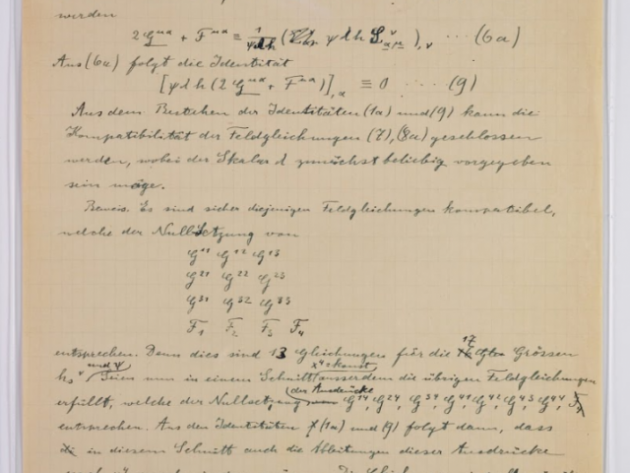 werden
2 G^{μα} + F^{μα} ≡ 1/(ψλh) (ψλh S^{ν}_{μα}),ν ··· (6a)
Aus (6a) folgt die Identität
[ψλh(2G^{μα} + F^{μα})],α ≡ 0 ··· (9)
Aus dem Bestehen der Identitäten (1a) und (9) kann die
Kompatibilität der Feldgleichungen (7), (8a) geschlossen
werden, wobei der Skalar λ zunächst beliebig vorgegeben
sein möge.
Beweis. Es sind sicher diejenigen Feldgleichungen kompatibel,
welche der Nullsetzung von
G^{11} G^{12} G^{13}
G^{21} G^{22} G^{23}
G^{31} G^{32} G^{33}
F_1 F_2 F_3 F_4
entsprechen. Denn dies sind 13 Gleichungen für die 17 Grössen
und ψ x^4 = konst
Seien nun in einem Schnitt ausserdem die übrigen Feldgleichungen
der Ausdrücke
erfüllt, welche der Nullsetzung G^{14}, G^{24}, G^{34}, G^{41}, G^{42}, G^{43}, G^{44},
entsprechen. Aus den Identitäten (1a) und (9) folgt dann, dass
in diesem Schnitt auch die Ableitungen dieser Ausdrücke